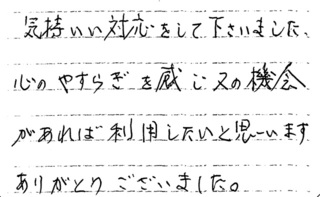 気持いい対応をして下さいました、
心のやすらぎを感じ又の機会
があれば利用したいと思います
ありがとうございました。